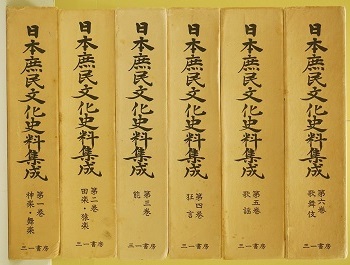 日本庶民文化史料集成
第一巻
神楽・舞楽
三一書房
日本庶民文化史料集成
第二巻
田楽・猿楽
三一書房
日本庶民文化史料集成
第三巻
能
三一書房
日本庶民文化史料集成
第四巻
狂言
三一書房
日本庶民文化史料集成
第五巻
歌謡
三一書房
日本庶民文化史料集成
第六巻
歌舞伎
三一書房